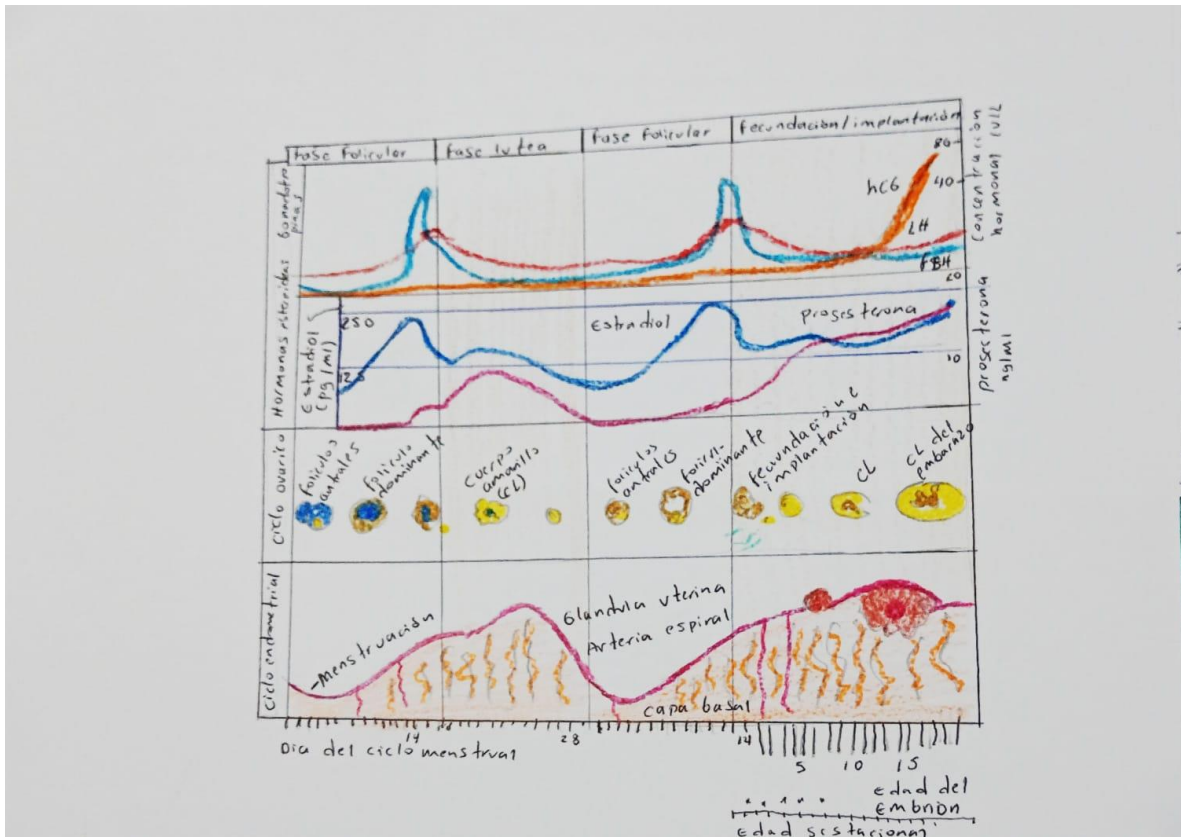 Fase Folicular
Fase lutea
Fase Folicular
Fecundación/implantación
Gonadotro
pinas
Concentración
hormonal IU/L
80
40
hCG
LH
FSH
Hormonas esteroideas
Estradiol
(pg/ml)
250
125
Estradiol
Progesterona
20
10
progesterona
ng/ml
Ciclo ovarico
Foliculos
antrales
Foliculo
dominante
Cuerpo
amarillo
(CL)
Foliculos
antrales
Folicul-
dominante
Fecundación e
implantación
CL
CL del
embarazo
Ciclo endometrial
-Menstruación
Glandula uterina
Arteria espiral
capa basal
14
28
14
Dia del ciclo menstrual
5
10
15
Edad del
Embrion
Edad gestacional